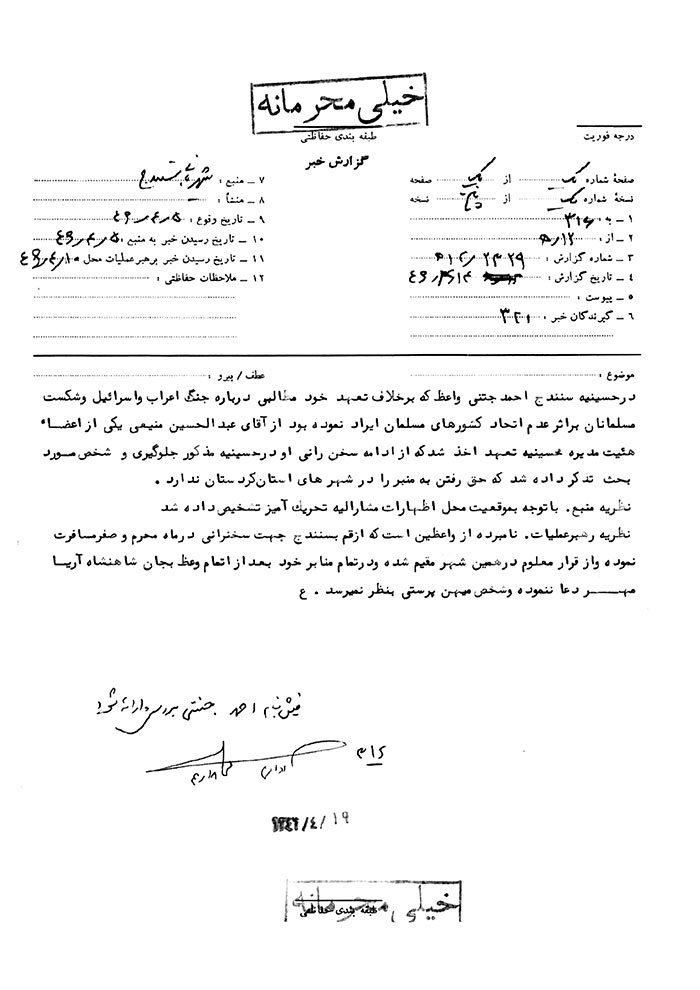 خیلی محرمانه
طبقه بندی حفاظتی
درجه فوریت
گزارش خبر
صفحه شماره یک از یک صفحه
نسخه شماره یک از پنج نسخه
۱ ــ به : ۳۱۶
۲ ــ از : ۵/۱۲
۳ ــ شماره گزارش :
۴ ــ تاریخ گزارش :
۵ ــ پیوست :
۶ ــ گیرندگان خبر : ۳۲۱
۷ ــ منبع : شهربانی سنندج
۸ ــ منشأ :
۹ ــ تاریخ وقوع : ۴۶/۴/۵
۱۰ ــ تاریخ رسیدن خبر به منبع : ۴۶/۴/۵
۱۱ ــ تاریخ رسیدن خبر برهبر عملیات محل : ۴۶/۴/۱۰
۱۲ ــ ملاحظات حفاظتی :
موضوع :
عطف / پیرو :
درحسینیه سنندج احمد جنتی واعظ که برخلاف تعهد خود مطالبی درباره جنگ اعراب واسرائیل وشکست
مسلمانان براثر عدم اتحاد کشورهای مسلمان ایراد نموده بود از آقای عبدالحسین منیعی یکی از اعضاء
هئیت مدیره حسینیه تعهد اخذ شد که از ادامه سخن رانی او درحسینیه مذکور جلوگیری و شخص مورد
بحث تذکر داده شد که حق رفتن به منبر را در شهر های استان کردستان ندارد .
نظریه منبع. باتوجه بموقعیت محل اظهارات مشارالیه تحریک آمیز تشخیص داده شد
نظریه رهبرعملیات. نامبرده از واعظین است که ازقم بسنندج جهت سخنرانی درماه محرم و صفر مسافرت
نموده واز قرار معلوم درهمین شهر مقیم شده ودرتمام منابر خود بعد از اتمام وعظ بجان شاهنشاه آریا
مهر دعا ننموده وشخص میهن پرستی بنظر نمیرسد . ع
فیش بنام احمد جنتی بررسی و ارائه شود
۱۹/۴/
خیلی محرمانه
طبقه بندی حفاظتی